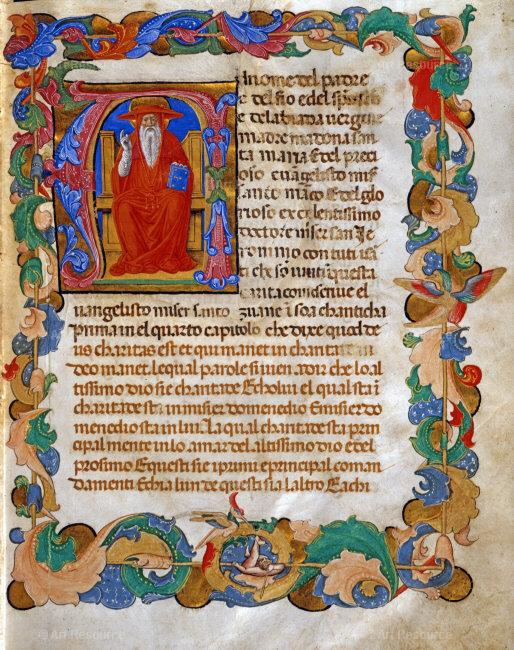 Al nome del padre
e del fio e del spirito
e dela biada vergine
madre madona san
ta maria E del preci
oso evangelisto mis
sanco marco E del glo
rioso ex celentissimo
doctore miser san Je
ronimo con tuti
ti che so in questa
carita come scrive el
vangelisto miser santo zuane i soa chanticha
prima in el quarto capitolo che dixe quod de
us charitas est et qui manet in charitate in
deo manet. le qual parole si vien a dir che lo al
tissimo dio sie charitade E cholui el qual sta i
charitade sta in miser domenedio E miser do
menedio sta in lui. La qual charitade sta prin
cipal mente in lo amar del altissimo dio e del
prosimo E questi sie i primi e principal coman
damenti E chia lun de questi sia laltro E a chi
© Art Resource